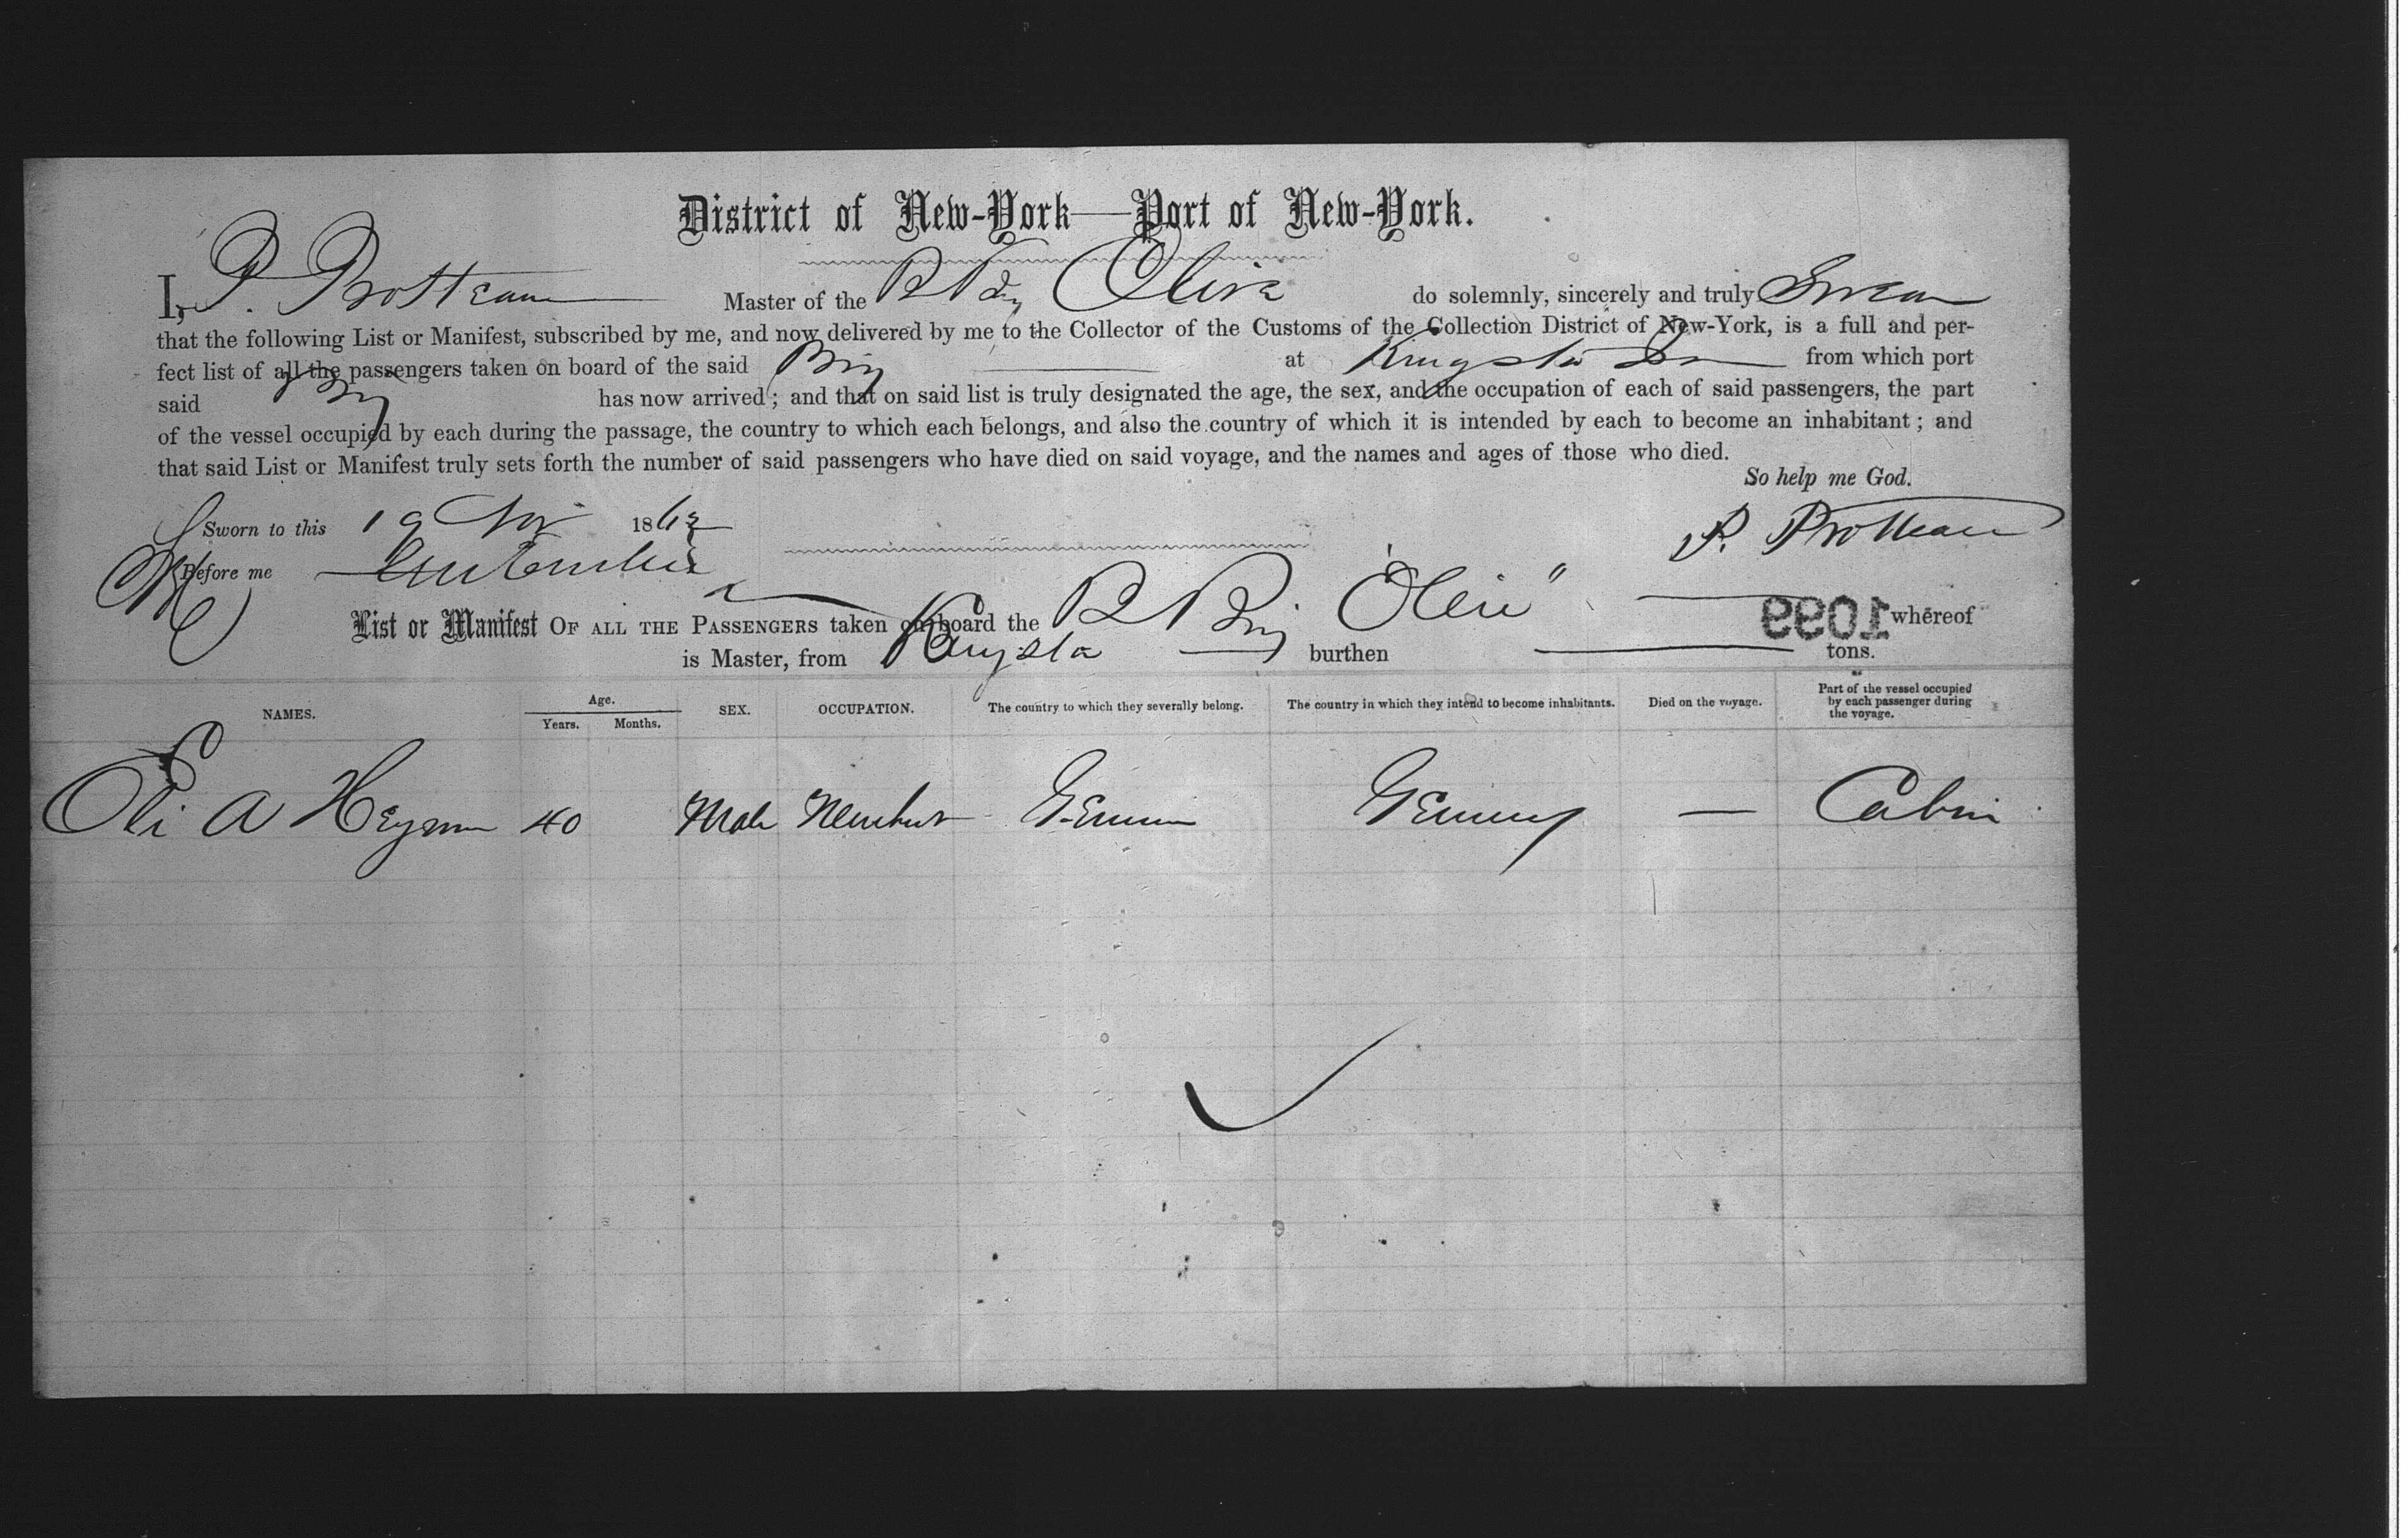 District of New-York—Port of New-York.
I, P. Protteau Master of the B Brig Oliva do solemnly, sincerely and truly Swear
that the following List or Manifest, subscribed by me, and now delivered by me to the Collector of the Customs of the Collection District of New-York, is a full and per-
fect list of all the passengers taken on board of the said Brig at Kingston Ja from which port
said Brig has now arrived; and that on said list is truly designated the age, the sex, and the occupation of each of said passengers, the part
of the vessel occupied by each during the passage, the country to which each belongs, and also the country of which it is intended by each to become an inhabitant; and
that said List or Manifest truly sets forth the number of said passengers who have died on said voyage, and the names and ages of those who died.
So help me God.
Sworn to this 19 Nov 186 P. Protteau
Before me
List or Manifest OF ALL THE PASSENGERS taken on board the B Brig 1099 whereof
is Master, from burthen tons.
NAMES. Age. Years. Months. SEX. OCCUPATION. The country to which they severally belong. The country in which they intend to become inhabitants. Died on the voyage. Part of the vessel occupied by each passenger during the voyage.
A 40 Male Germany — Cabin